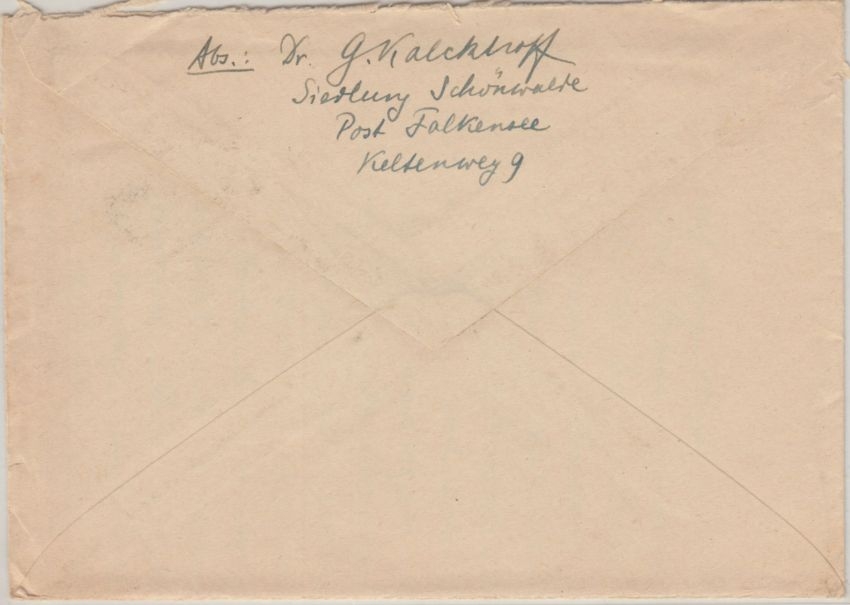 Abs.: Dr. G. Kalckhoff
Siedlung Schönwalde
Post Falkensee
Keltenweg 9